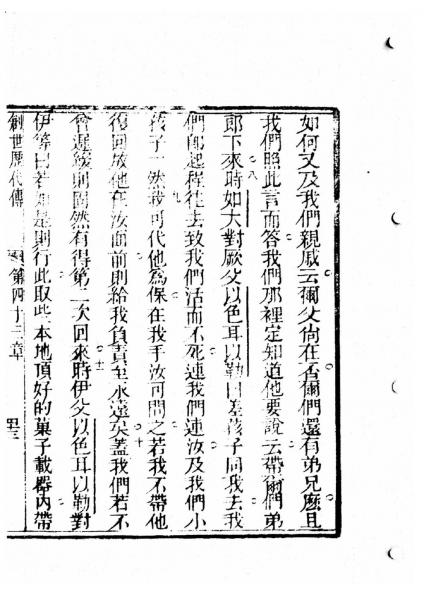 如何又及我們親戚云爾父尚在否爾們還有弟兄麼且
我們照此言而答我們那裡定知道他要說云帶爾們弟
八
郎下來時如大對厥父以色耳以勒曰差孩子同我去我
們卽起程往去致我們活而不死連我們連汝及我們小
九
孩子一然我可代他為保在我手汝可問之若我不帶他
復回放他在汝面前則給我負責至永遠矣蓋我們若不
十
會遲緩則固然有得第二次回來時伊父以色耳以勒對
十一
伊等曰若如是則行此取些本地頂好的菓子載器內帶
創世歷代傳
第四十三章